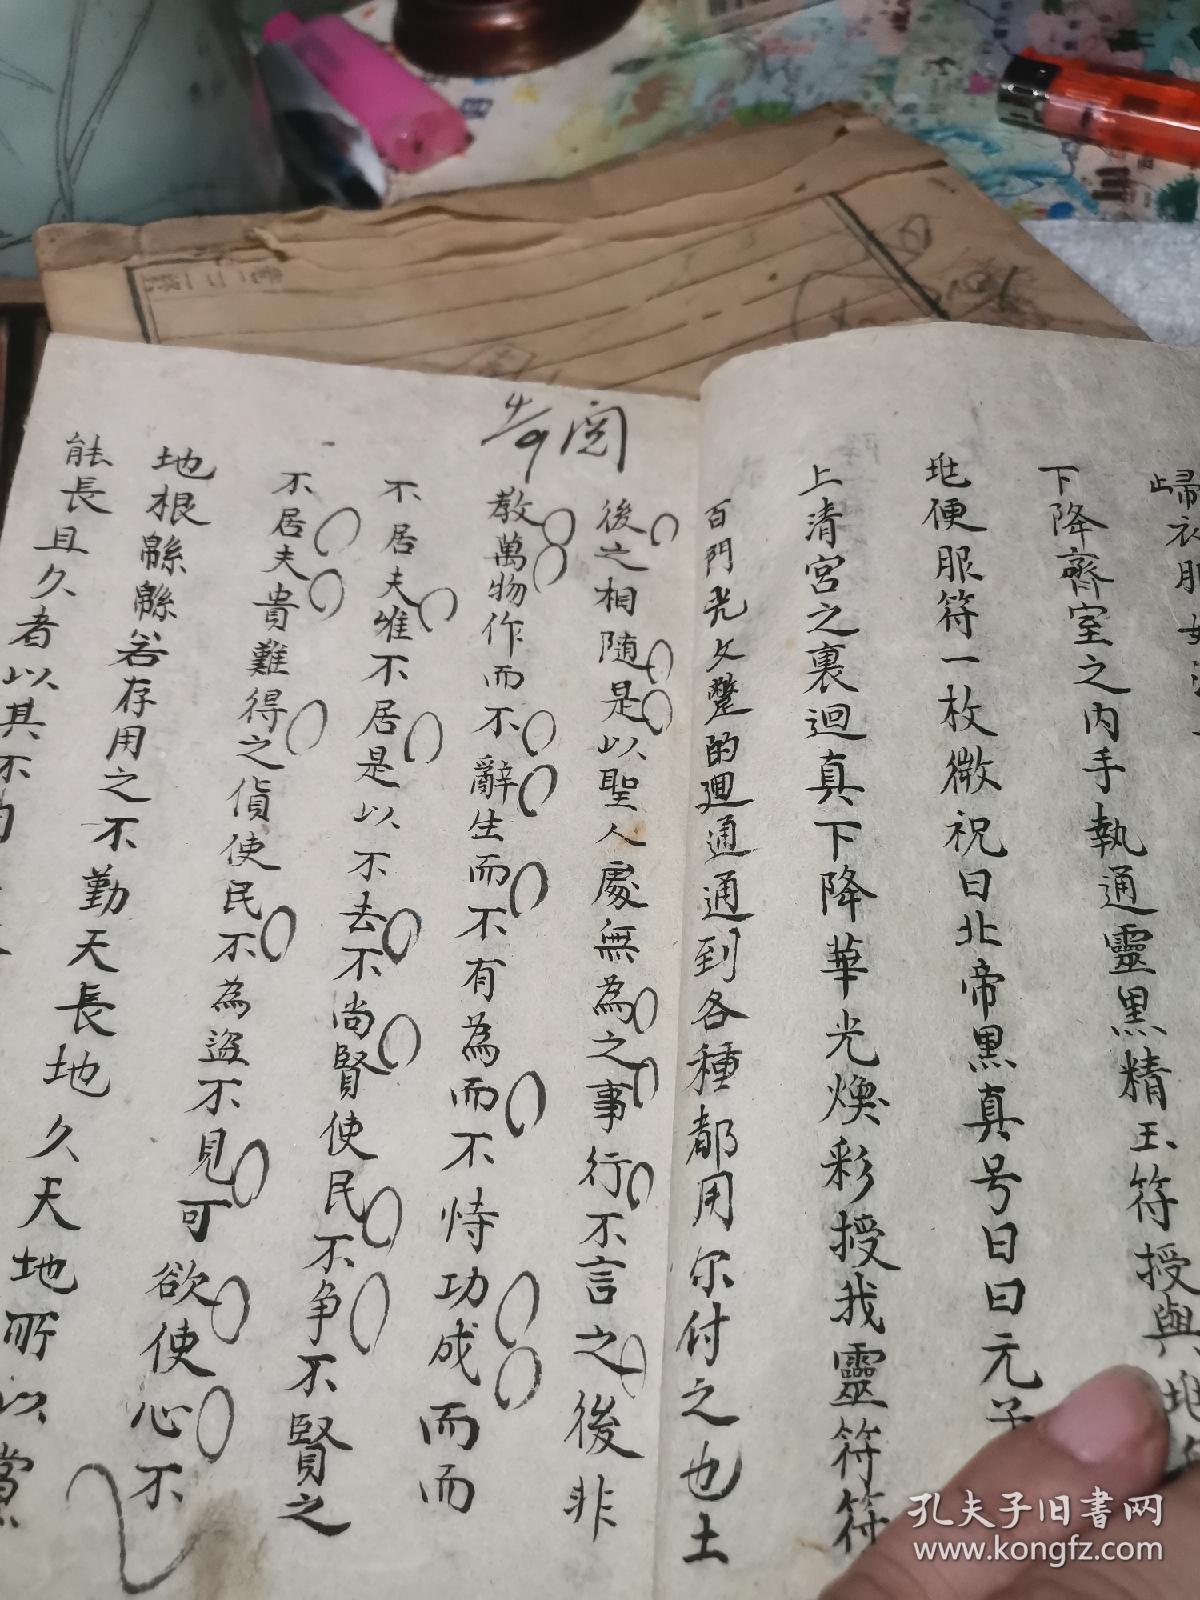 歸衣服
下降齋室之内手執通靈黑精玉符授與地
地便服符一枚微祝曰北帝黒真号曰曰元
上清宮之裏迴真下降華光煥彩授我靈符符
百門光文蹩的廻通通到各種都用尔付之也土
後之相随是以聖人處無為之事行不言之後非
教萬物作而不辭生而不有為而不恃功成而而
不居夫惟不居是以不去不尚賢使民不争不賢之
不居夫貴難得之貨使民不為盜不見可欲使心不
地根緜緜若存用之不勤天長地久天地所以當
能長且久者以其不
孔夫子旧书网
www.kongfz.com